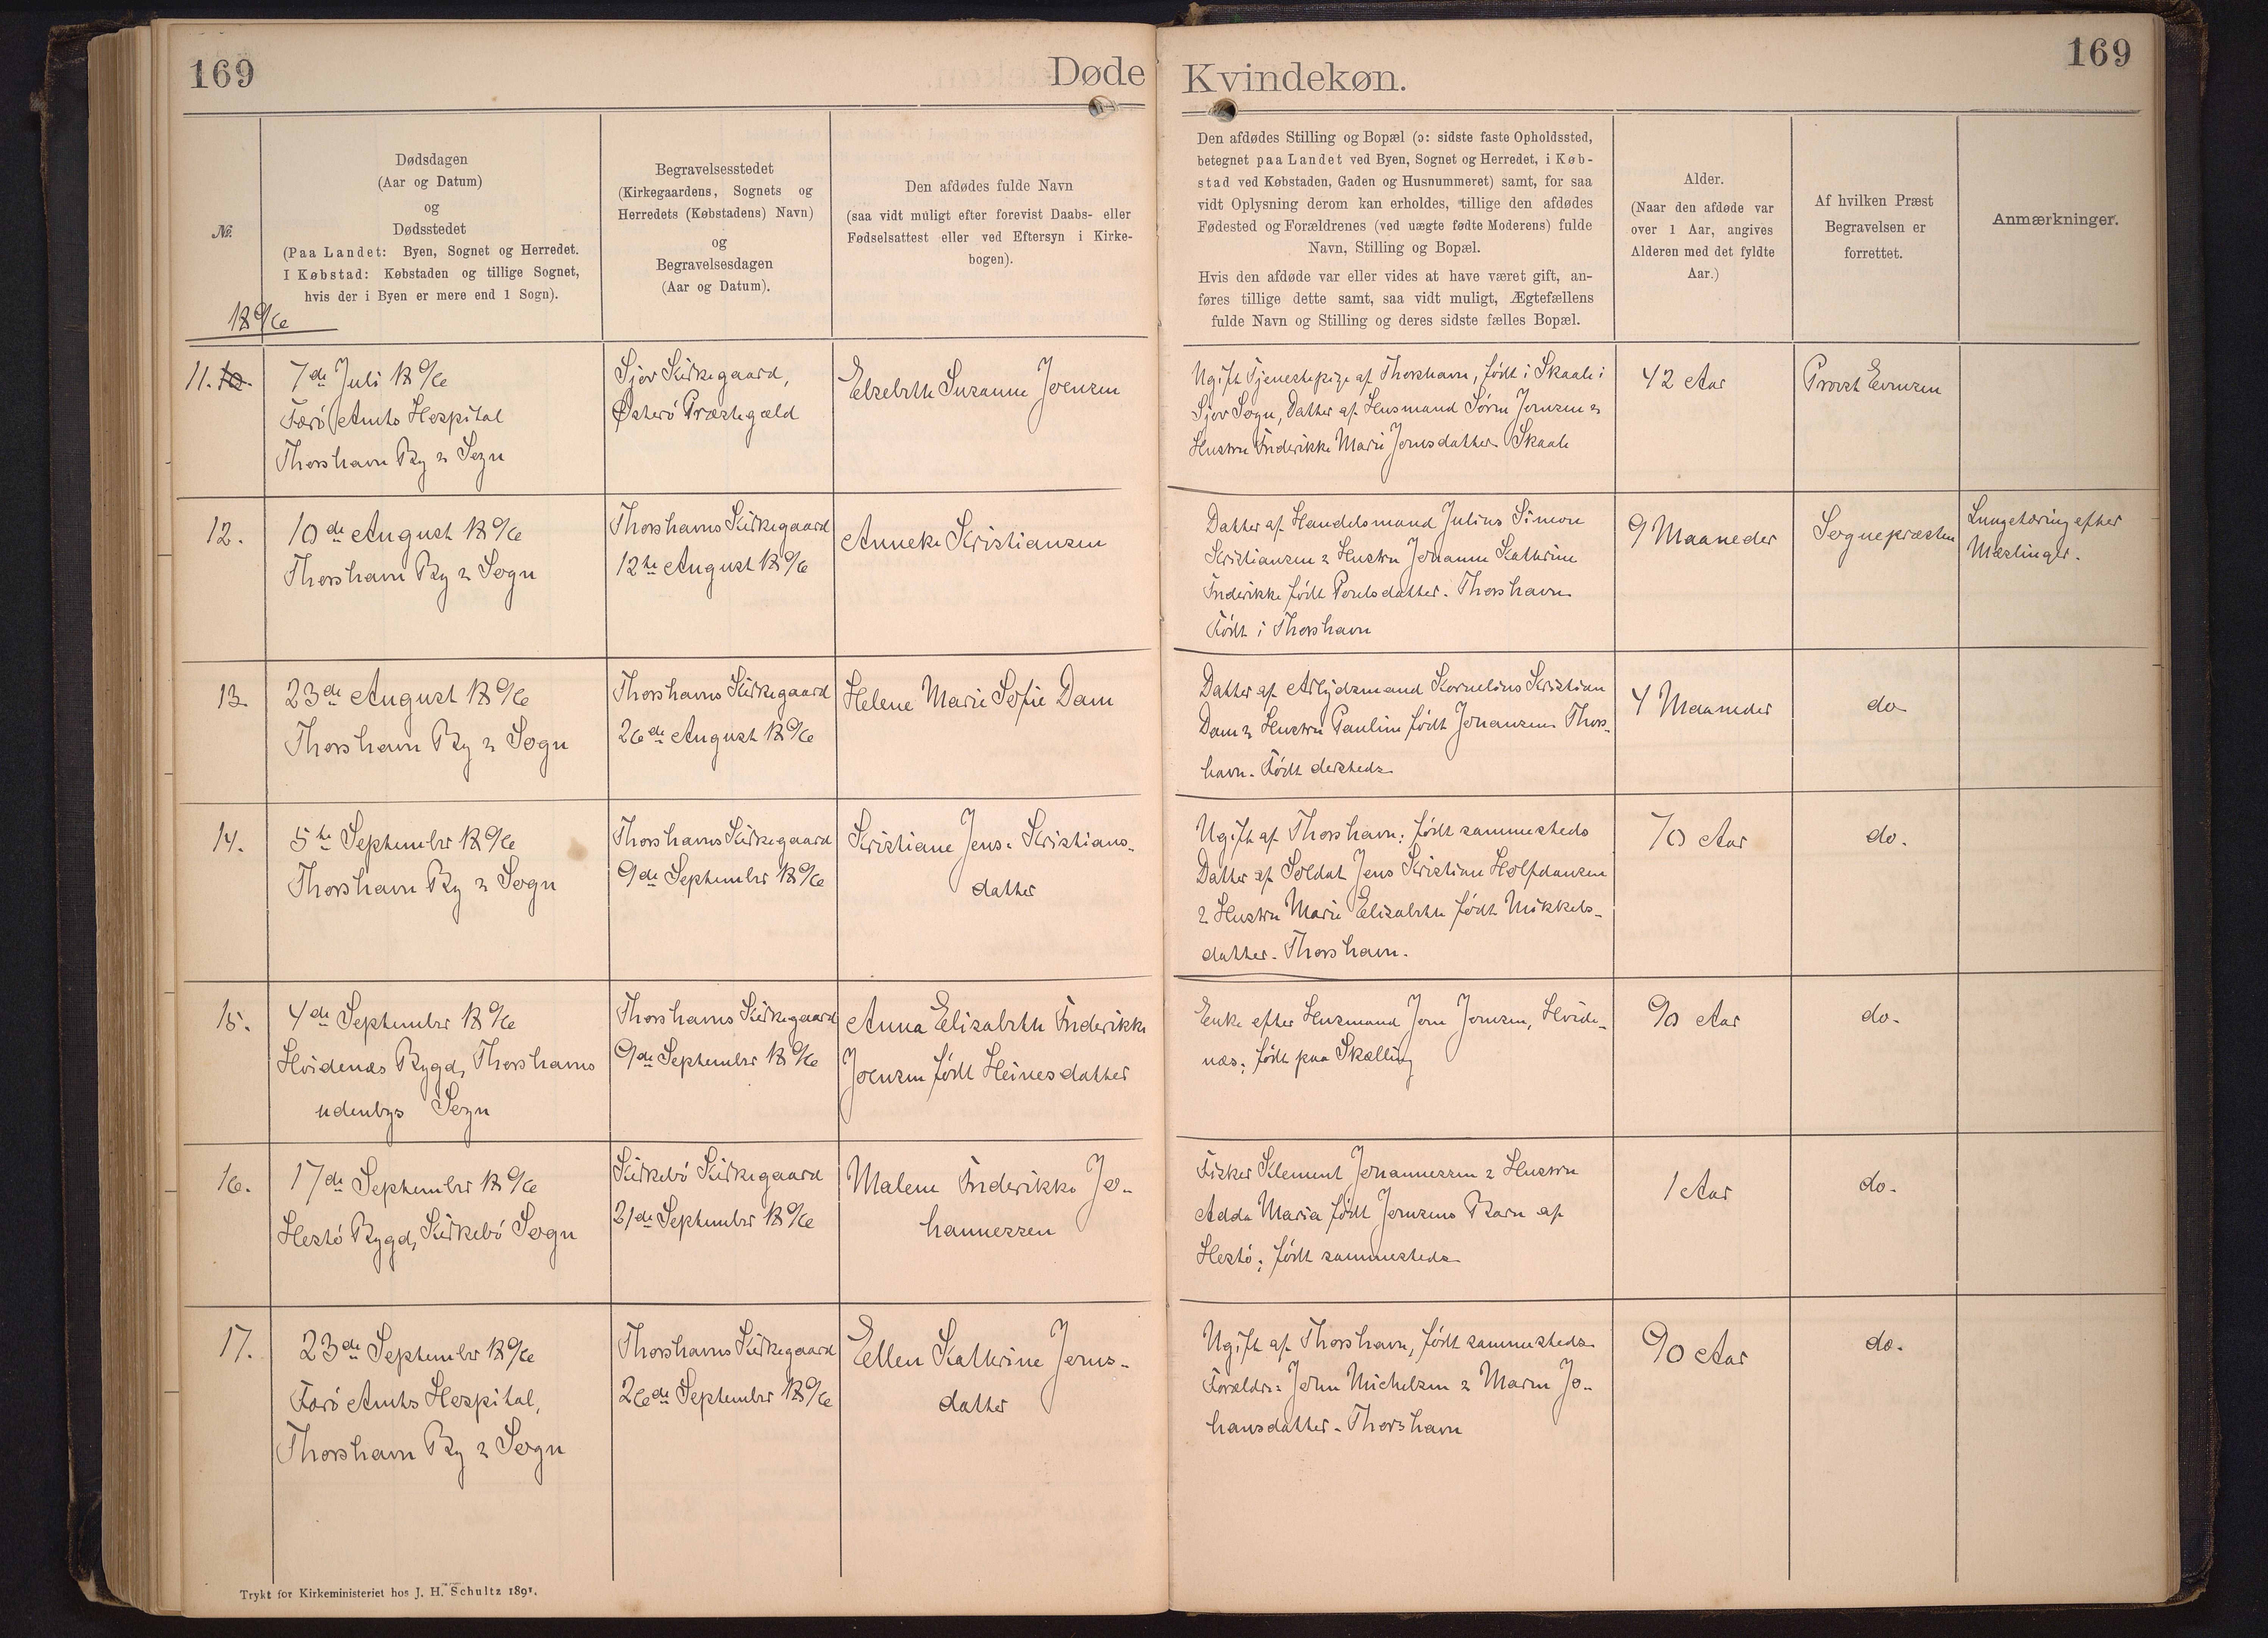 169
Døde
Kvindekøn.
169
№.
Dødsdagen
(Aar og Datum)
og
Dødsstedet
(Paa Landet: Byen, Sognet og Herredet.
I Købstad: Købstaden og tillige Sognet,
hvis der i Byen er mere end 1 Sogn).
Begravelsesstedet
(Kirkegaardens, Sognets og
Herredets (Købstadens) Navn)
og
Begravelsesdagen
(Aar og Datum).
Den afdødes fulde Navn
(saa vidt muligt efter forevist Daabs- eller
Fødselsattest eller ved Eftersyn i Kirke-
bogen).
Den afdødes Stilling og Bopæl (ɔ: sidste faste Opholdssted,
betegnet paa Landet ved Byen, Sognet og Herredet, i Køb-
stad ved Købstaden, Gaden og Husnummeret) samt, for saa
vidt Oplysning derom kan erholdes, tillige den afdødes
Fødested og Forældrenes (ved uægte fødte Moderens) fulde
Navn, Stilling og Bopæl.
Hvis den afdøde var eller vides at have været gift, an-
føres tillige dette samt, saa vidt muligt, Ægtefællens
fulde Navn og Stilling og deres sidste fælles Bopæl.
Alder.
(Naar den afdøde var
over 1 Aar, angives
Alderen med det fyldte
Aar.)
Af hvilken Præst
Begravelsen er
forrettet.
Anmærkninger.
1896
11. 10.
7de Juli 1896
Færö Amts Hospital
Thorshavn By & Sogn
Sjov Kirkegaard,
Österö Præstegæld
Elsebeth Susanne Joensen
Ugift Tjenestepige af Thorshavn, født i Skaale i
Sjov Sogn, Datter af Husmand Sören Joensen &
Hustru Frederikke Marie Joensdatter. Skaale
42 Aar
Provst Evensen
12.
10de August 1896
Thorshavn By & Sogn
Thorshavns Kirkegaard
12te August 1896
Anneke Kristiansen
Datter af Handelsmand Julius Simon
Kristiansen & Hustru Johanne Kathrine
Frederikke født Poulsdatter. Thorshavn
Født i Thorshavn
9 Maaneder
Sognepræsten
Lungetæring efter
Mæslinger.
13.
23de August 1896
Thorshavn By & Sogn
Thorshavns Kirkegaard
26de August 1896
Helene Marie Sofie Dam
Datter af Arbejdsmand Kornelius Kristian
Dam & Hustru Pauline født Johansen. Thors-
havn. Født dersteds
4 Maaneder
do
14.
5te September 1896
Thorshavn By & Sogn
Thorshavns Kirkegaard
9de September 1896
Kristiane Jens-Kristians-
datter
Ugift af Thorshavn; født sammesteds
Datter af Soldat Jens Kristian Holfdansen
& Hustru Marie Elisabeth født Mikkels-
datter. Thorshavn.
70 Aar
do.
15.
4de September 1896
Hvidenæs Bygd, Thorshavns
udenbys Sogn
Thorshavns Kirkegaard
9de September 1896
Anna Elisabeth Frederikke
Joensen født Heinesdatter
Enke efter Husmand Joen Joensen, Hvide-
næs; født paa Skælling
90 Aar
do.
16.
17de September 1896
Hestö Bygd, Kirkebö Sogn
Kirkebö Kirkegaard
21de September 1896
Malene Frederikke Jo-
hannessen
Fisker Klement Johannessen & Hustru
Adda Maria født Joensens Barn af
Hestö; født sammesteds
1 Aar
do.
17.
23de September 1896
Færö Amts Hospital,
Thorshavn By & Sogn
Thorshavns Kirkegaard
26de September 1896
Ellen Kathrine Joens-
datter
Ugift af Thorshavn, født sammesteds
Forældre: John Michelsen & Maren Jo-
hansdatter. Thorshavn
90 Aar
do.
Trykt for Kirkeministeriet hos J. H. Schultz 1891.